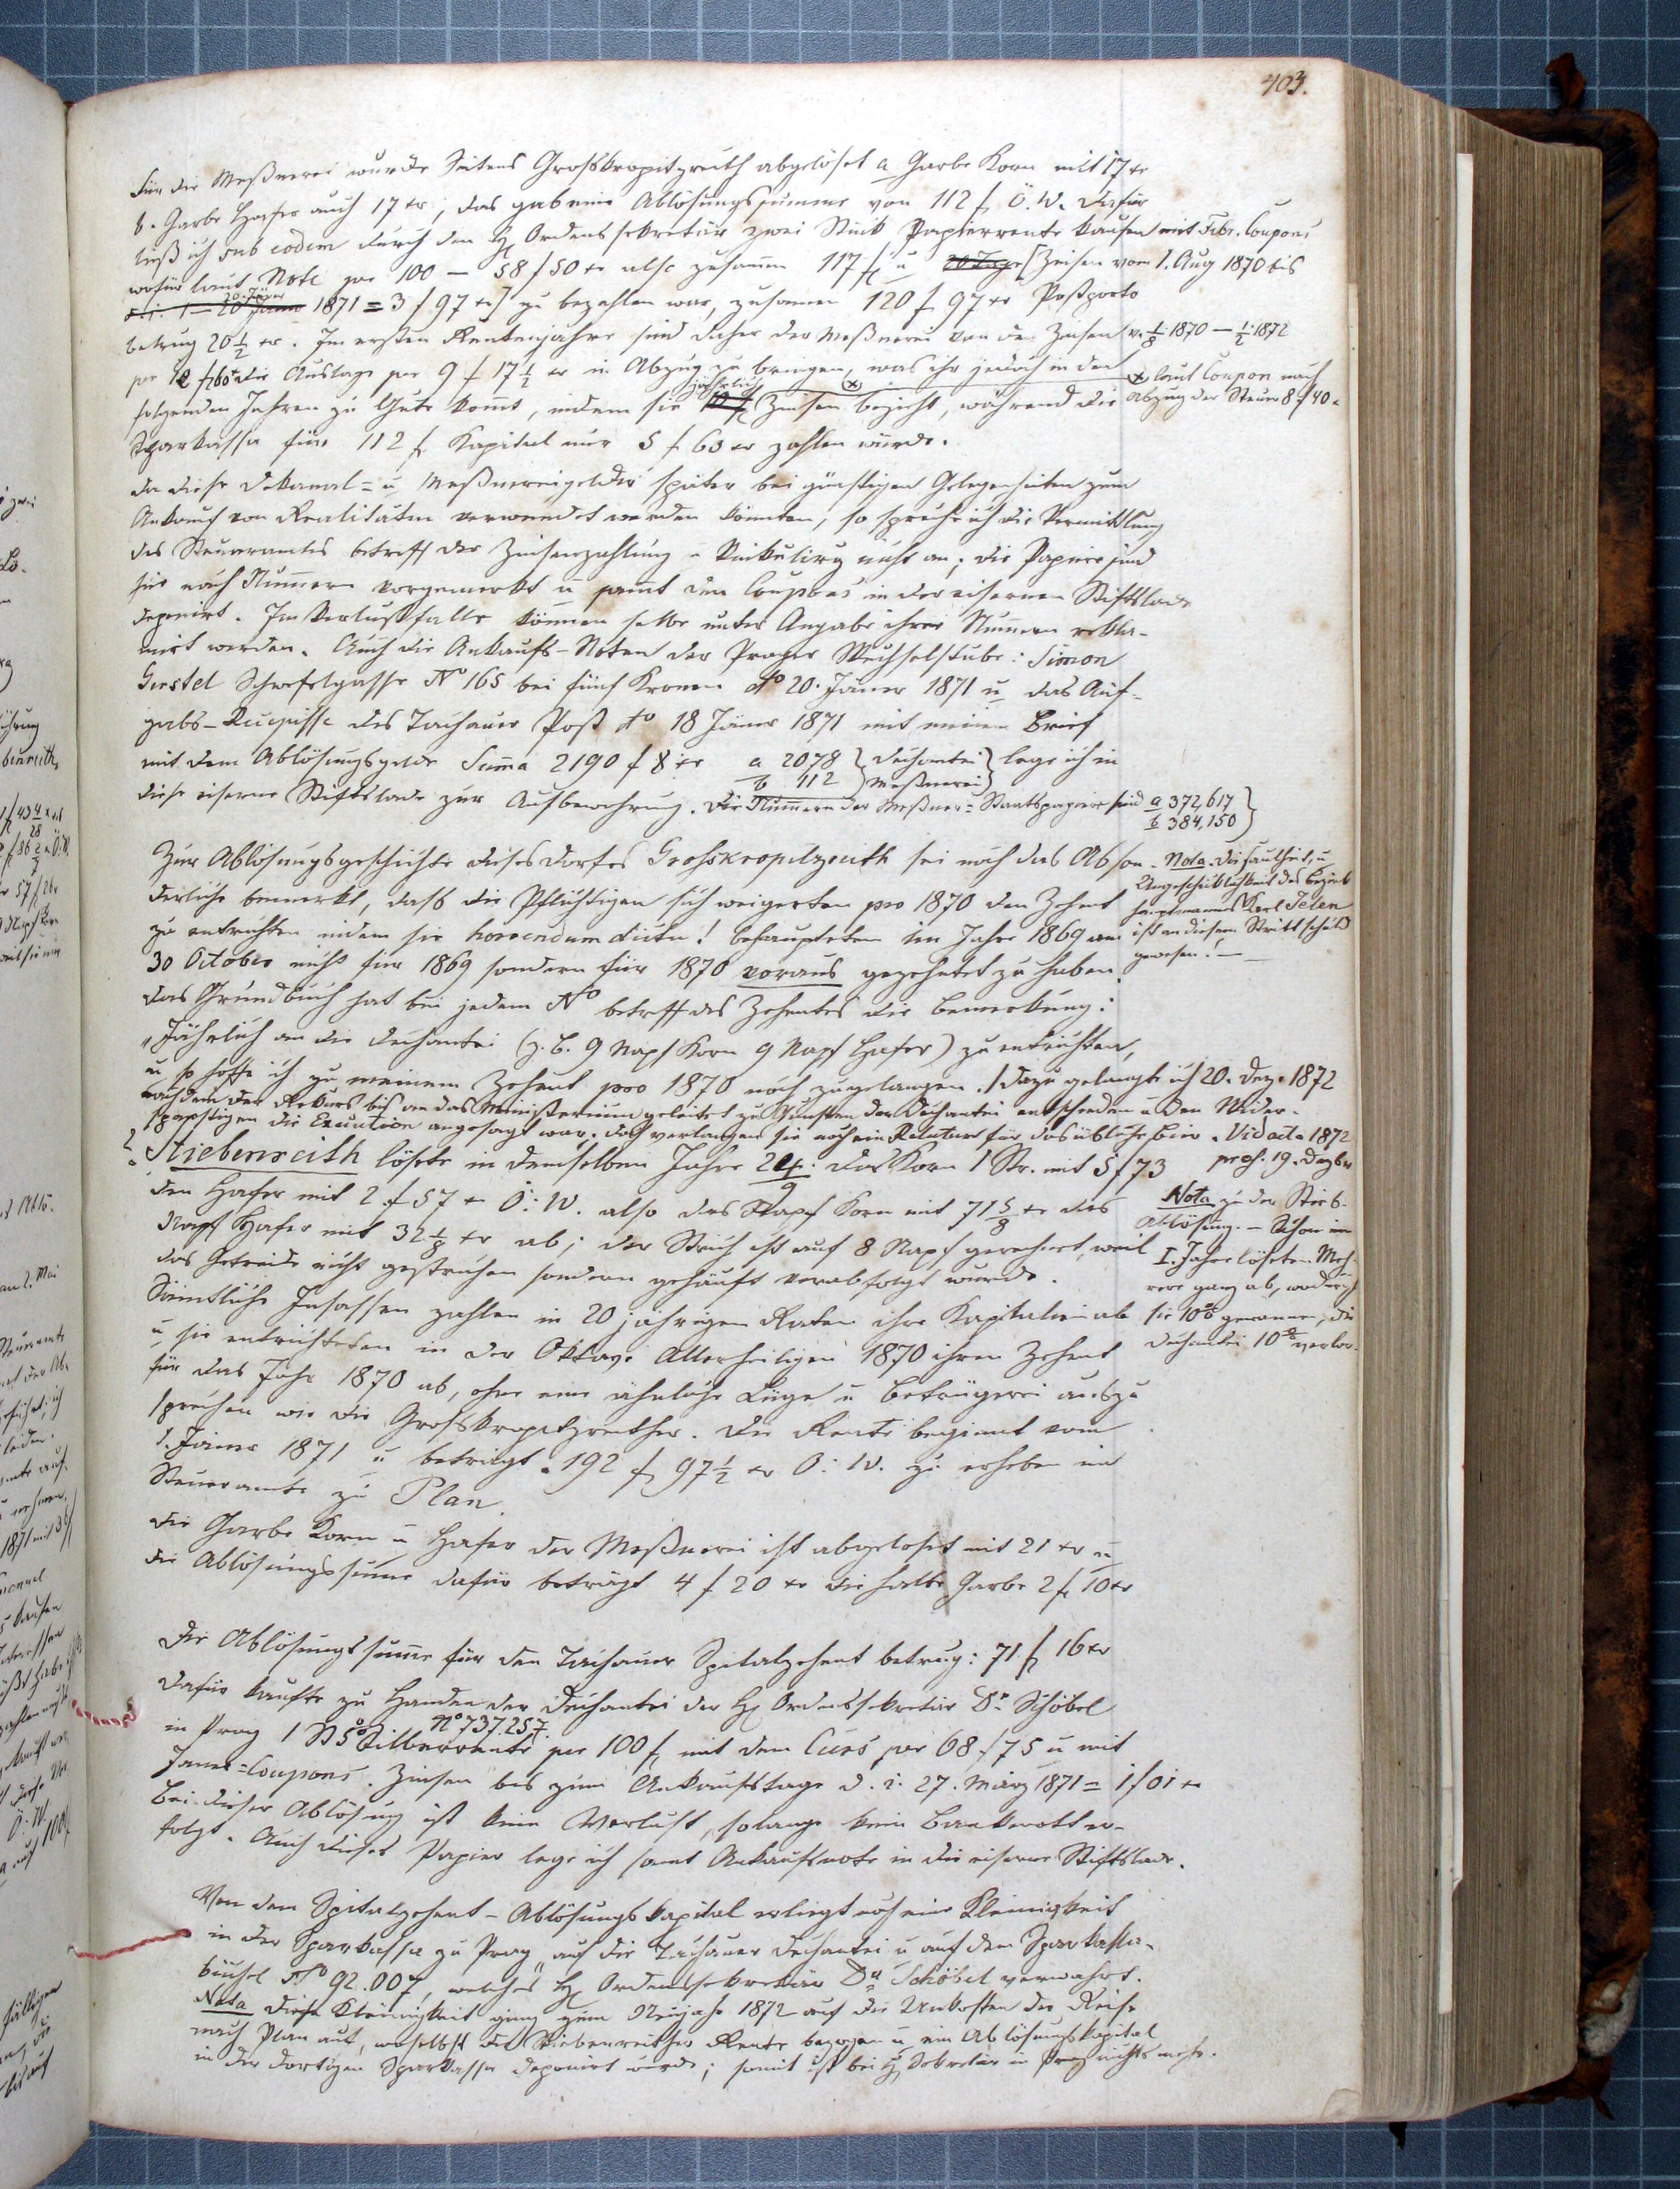 403.
Für die Meßnerei wurde Seitens Grosskropitzreuth abgelöset a Garbe Korn mit 17 xr
b. Garbe Hafer auch 17 xr, das gab eine Ablösungssumme von 112 f Ö. W. Dafür
ließ ich sub eodem durch den H Ordenssekretär zwei Stück Papierrente kaufen mit Febr. Coupons
wofür laut Note per 100 – 58 f 50 xr also zusamm 117 f u 20 Tage [Zeisen vom 1. Aug 1870 bis
20. Jäner 1871 = 3 f 97 xr] zu bezahlen war, zusammen 120 f 97 xr Postporto
betrug 20 ½ xr. Im ersten Rentenjahre sind daher der Meßnerei von den Zinsen v. 1/8 1870 – 1/2 1872
per 12 f 60 xr die Auslage per 9 f 17 ½ xr in Abzug zu bringen, was ihr jedoch in den
folgenden Jahren zu Gute kommt, indem sie jährlich (x) Zinsen bezieht, während die
(x) laut Coupon nach
Abzug der Steuer 8 f 40 x
Sparkassa für 112 f Kapital nur 5 f 63 xr zahlen würde.
Da diese Dekanal= u Meßnereigelder später bei günstigen Gelegenheiten zum
Ankauf von Realitäten verwendet werden könnten, so spreche ich die Vermittlung
des Steueramtes betreff der Zinsenzahlung u Vinkulirung nicht an; die Papiere sind
hier nach Nummern vorgemerkt u sammt den Coupons in der eisernen Stiftslade
deponirt. Im Verlustfalle können selbe unter Angabe ihrer Nummern rekla-
mirt werden. Auch die Ankaufs-Noten der Prager Wechselstube: Simon
Gerstel Schwefelgasse No 165 bei fünf Kronen dto 20. Jäner 1871 u das Auf=
gabs-Recepisse des Tachauer Post dto 18 Jäner 1871 mit meinem Brief
mit dem Ablösungsgelde Summa 2190 f 8 xr a 2078 } Dechantei } lege ich in
b 112 } Meßnerei }
diese eiserne Stiftslade zur Aufbewahrung. Die Nummern der Meßner= Staatspapiere sind a 372,617 }
b 384,150 }
Zur Ablösungsgeschichte dieses Dorfes Grosskropitzreuth sei noch das Abson-
derliche bemerkt, dass die Pflichtigen sich weigerten pro 1870 den Zehent
zu entrichten indem sie horrendum dictu! behaupteten im Jahre 1869 am
30 October nicht für 1869 sondern für 1870 voraus gezehntet zu haben.
Nota. Die Faulheit, u
Ungeschicklichkeit des Bezirks
hauptmannes Karl Jelen
ist an diesem Stritt schuld
gewesen! –
Das Grundbuch hat bei jedem No betreff des Zehentes die Bemerkung:
„Jährlich an die Dechantei (z. B. 9 Napf Korn 9 Napf Hafer) zu entrichten,
u so hoffe ich zu meinem Zehent pro 1870 noch zugelangen. / Dazu gelangte ich 20. Dez. 1872
nachdem der Rekurs bis an das Ministerium geleitet zu Gunsten der Dechantei entschieden u den Wider-
spenstigen die Execution angesagt war. Doch verlangen sie noch ein Relutum für das übliche Bier. Vid acta 1872
pres. 19. Dezbr
2. Stiebenreith lösete in demselben Jahre das Korn 1 Str. mit 5 f 73
den Hafer mit 2 f 57 xr Ö. W. also das Napf Korn mit 71 5/8 xr das
Napf Hafer mit 32 1/8 xr ab; der Strich ist auf 8 Napf gerechnet, weil
das Getreide nicht gestrichen sondern gehäuft verabfolgt wurde.
Nota zu der Stieb-
Ablösung. – Schon im
1. Jahre löseten Meh-
rere ganz ab, wodurch
sie 10% gewannen, die
Dechantei 10% verlor.
Sämtliche Insassen zahlen in 20 jährigen Raten ihre Kapitalien ab
u sie entrichteten in der Oktave Allerheiligen 1870 ihren Zehent
für das Jahr 1870 ab, ohne eine ähnliche Lüge u Betrügerei auszu
sprechen wie die Grosskropitzreuther. Die Rente beginnt vom
1. Jäner 1871 u beträgt 192 f 97 ½ xr Ö. W. zu erheben im
Steueramte zu Plan.
Die Garbe Korn u Hafer der Meßnerei ist abgelöset mit 21 xr u
die Ablösungssumme dafür beträgt 4 f 20 xr die halbe Garbe 2 f 10 xr
Die Ablösungssumme für den Tachauer Spitalzehent betrug: 71 f 16 xr
Dafür kaufte zu Handen der Dechantei der H Ordenssekretär Dr. Schöbel
in Prag 1 St 5% Silberrente No 737.257. per 100 f mit dem Curs per 68 f 75 u mit
Janer=Coupons. Zinsen bis zum Ankaufstage d. i. 27. März 1871 = 1 f 01 xr
Bei dieser Ablösung ist kein Verlust, solange kein Bankrott er-
folgt. Auch dieses Papier lege ich samt Ankaufsnote in die eiserne Stiftslade.
Von dem Spitalzehent-Ablösungskapital erliegt noch eine Kleinigkeit
in der Sparkassa zu Prag, auf die Tachauer Dechantei u auf dem Sparkassa-
büchel No 92.007, welches H Ordenssekretär Dr Schöbel verwahrt.
Nota Diese Kleinigkeit ging zum Neujahr 1872 auf die Unkosten der Reise
nach Plan auf, woselbst die Stiebenreither Rente bezogen u ein Ablösungskapital
in der dortigen Sparkassa deponirt wurde; somit ist bei H Sekretär in Prag nichts mehr.